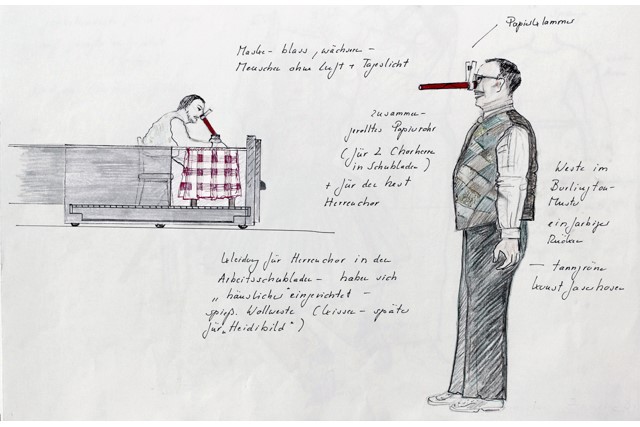 Papierklammer
Maske - blass, wächsern -
Menschen ohne Luft + Tageslicht
zusammen-
gerolltes Papierrohr
(für 2 Chorherren
in Schubladen)
+ für den Rest
Herrenchor
Weste im
Burlington-
Muster
einfarbiger
Rücken
— tanngrüne
Kunstfaserhosen
Kleidung für Herrenchor in den
Arbeitsschubladen - haben sich
„häuslich" eingerichtet -
spiess. Wollweste ( - später
für „Heidibild")